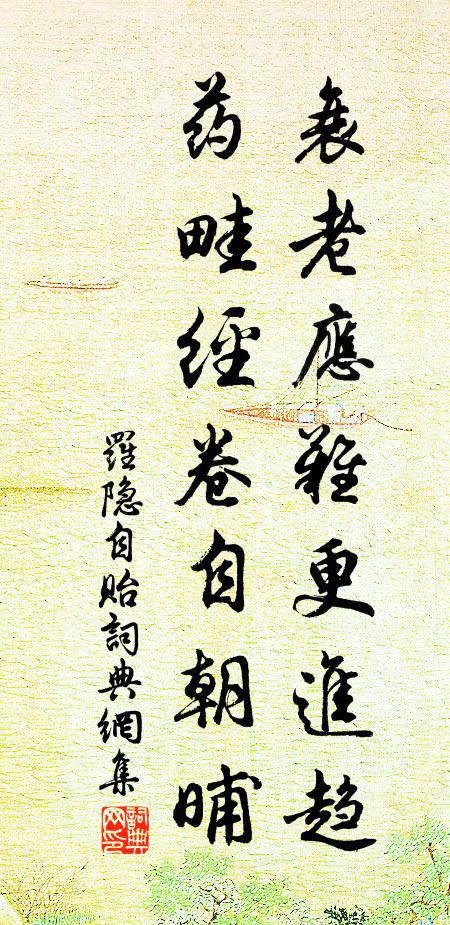 衰老應難更進趋
药畦經卷自朝晡
羅隐自貽詞典網集
詞典网印